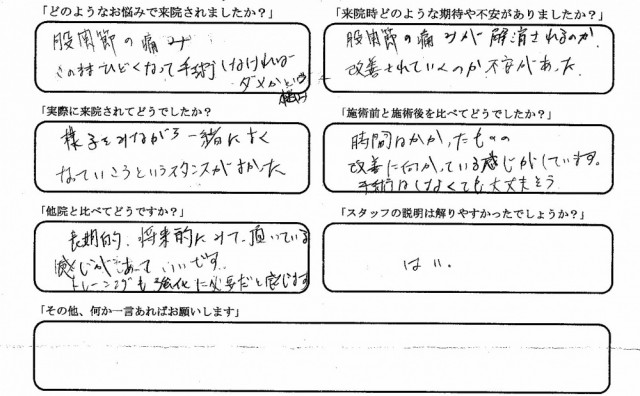 「どのようなお悩みで来院されましたか？」
股関節の痛み
このままひどくなって手術しなければ
ダメかという
「来院時どのような期待や不安がありましたか？」
股関節の痛みが解消されるのか、
改善されていくのか不安があった。
「実際に来院されてどうでしたか？
様子をみながら一緒によく
なっていこうというスタンスがよかった
「施術前と施術後を比べてどうでしたか？」
時間はかかったものの
改善に向かっている感じがしています。
手術はしなくても大丈夫そう
「他院と比べてどうですか？」
長期的、将来的にみて頂いている
感じがあっていいです。
トレーニングも強化に必要だと感じます
「スタッフの説明は解りやすかったでしょうか？」
はい。
「その他、何か一言あればお願いします」